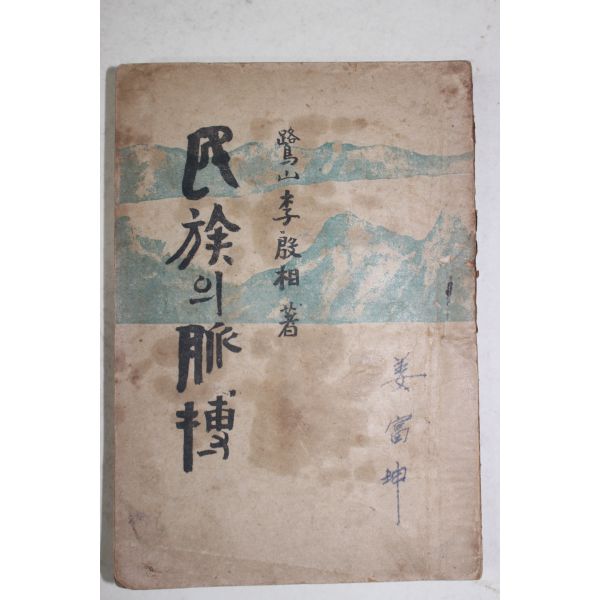 民族의脈搏
鷺山李殷相 著
姜富坤